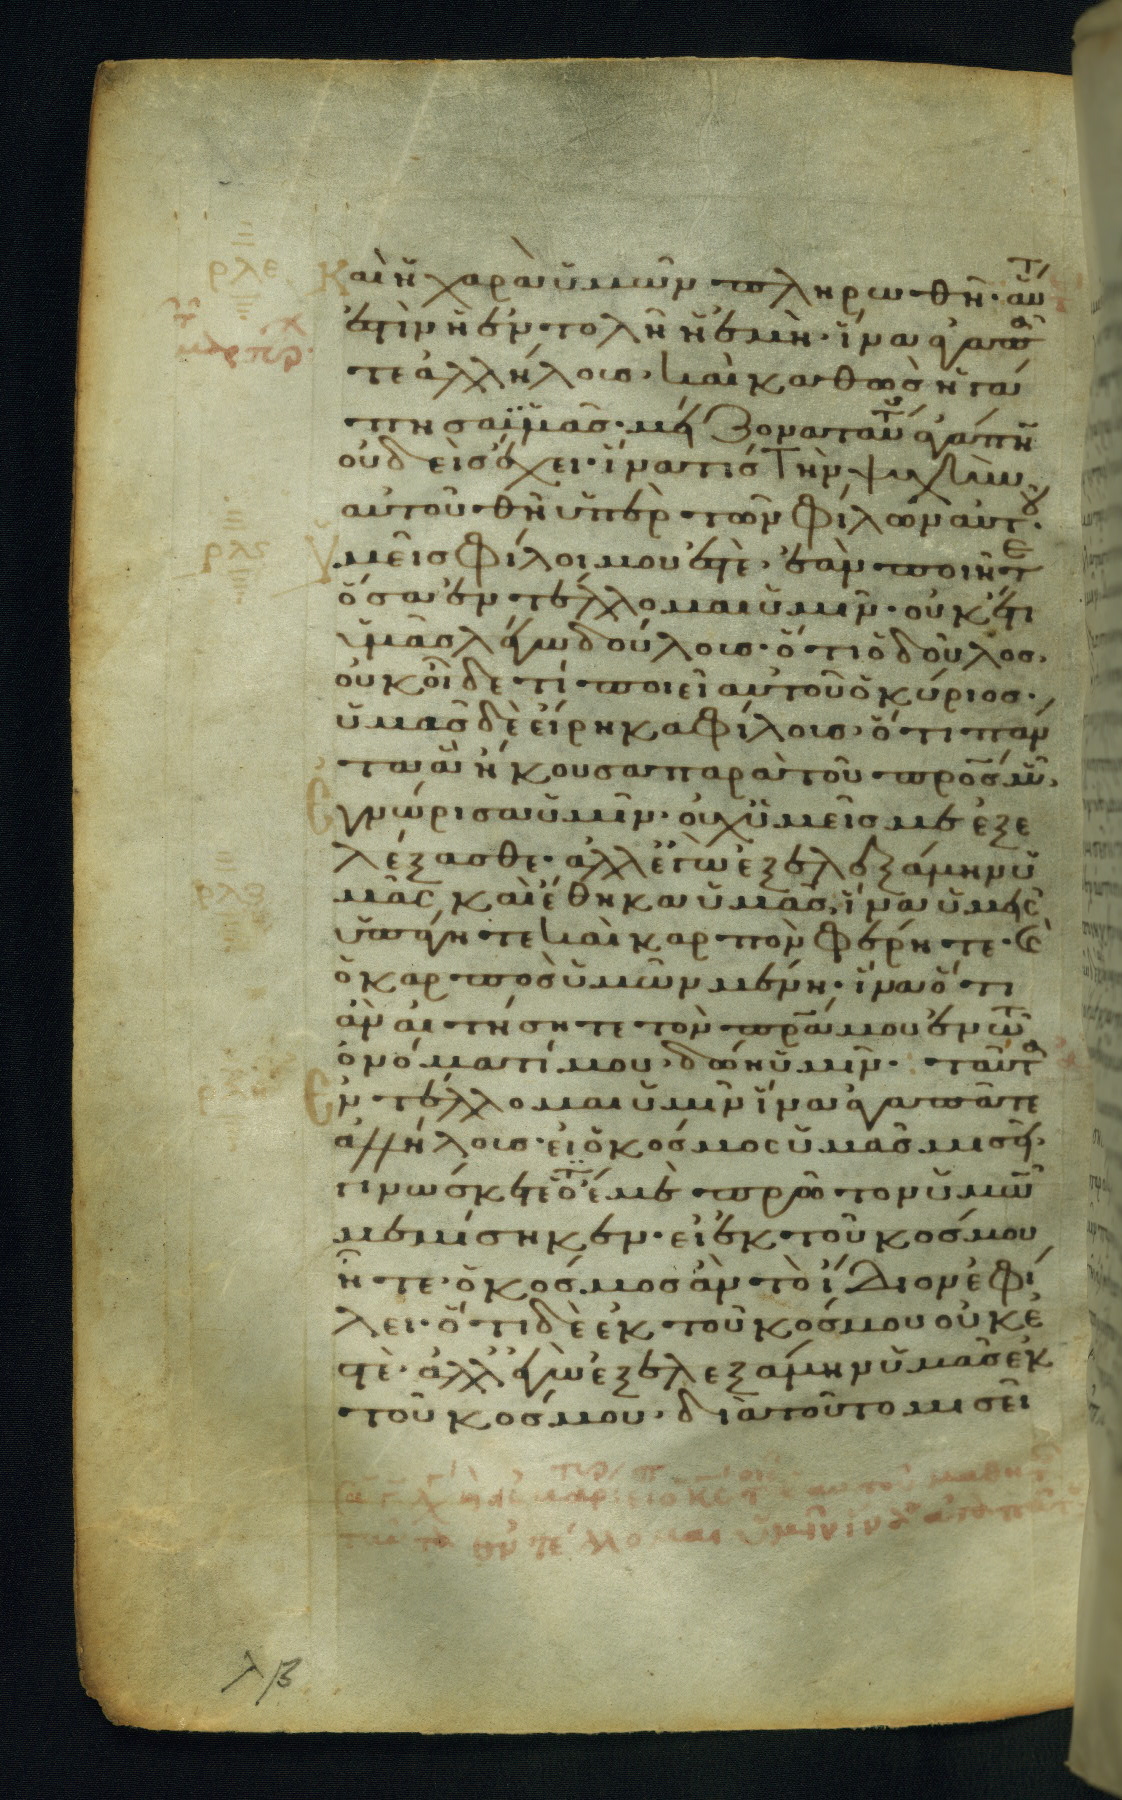 Καὶ ἡ χαρὰ ὑμῶν πληρωθῆ· αὕτ
ἐστὶν ἡ ἐντολὴ ἡ ἐμὴ· ἵνα ἀγαπᾶ
τε ἀλλήλους, καὶ καθὼς ἠγά
πησα ὑμᾶς· μείζονα ταύτ ἀγάπη
οὐδεὶς ἔχει· ἵνα τίς τὴν ψυχὴν
αὐτοῦ θῆ ὑπὲρ τῶν φίλων αὐτου·
ρλς Ὑμεῖς φίλοι μου ἐστὲ· ἐὰν ποιῆτε
ὅσα ἐντέλλομαι ὑμῖν· οὐκέτι
ὑμᾶς λέγω δούλους· ὅτι ὁ δοῦλος
οὐκ οἶδε τί ποιεῖ αὐτοῦ ὁ κύριος·
ὑμᾶς δὲ εἴρηκα φίλους· ὅτι πάν
τα ἃ ἤκουσα παρὰ τοῦ πρς μου,
Ἐγνώρισα ὑμῖν· οὐχ ὑμεῖς με ἐξε
λέξασθε· ἀλλ' ἐγὼ ἐξελεξάμην ὑ
μᾶς καὶ ἔθηκα ὑμᾶς, ἵνα ὑμεῖς
ὑπάγητε καὶ καρπὸν φέρητε· καὶ
ὁ καρπὸς ὑμῶν μένη· ἵνα ὅ τι
ἂν αἰτήσητε τὸν πρα μου ἐν τῶ
ὀνόματί μου, δώη ὑμῖν· ταῦτα
Ἐντέλλομαι ὑμῖν ἵνα ἀγαπᾶτε
ἀλλήλους· εἰ ὁ κόσμος ὑμᾶς μισεῖ·
γινώσκετε ὅτι ἐμὲ πρῶτον ὑμῶν
μεμίσηκεν· εἰ ἐκ τοῦ κόσμου
ἦτε· ὁ κόσμος ἂν τὸ ἴδιον ἐφί
λει· ὅτι δὲ ἐκ τοῦ κόσμου οὐκ ἐ
στὲ· ἀλλ' ἐγὼ ἐξελεξάμην ὑμᾶς ἐκ
τοῦ κόσμου· διὰ τοῦτο μισεῖ
λβ